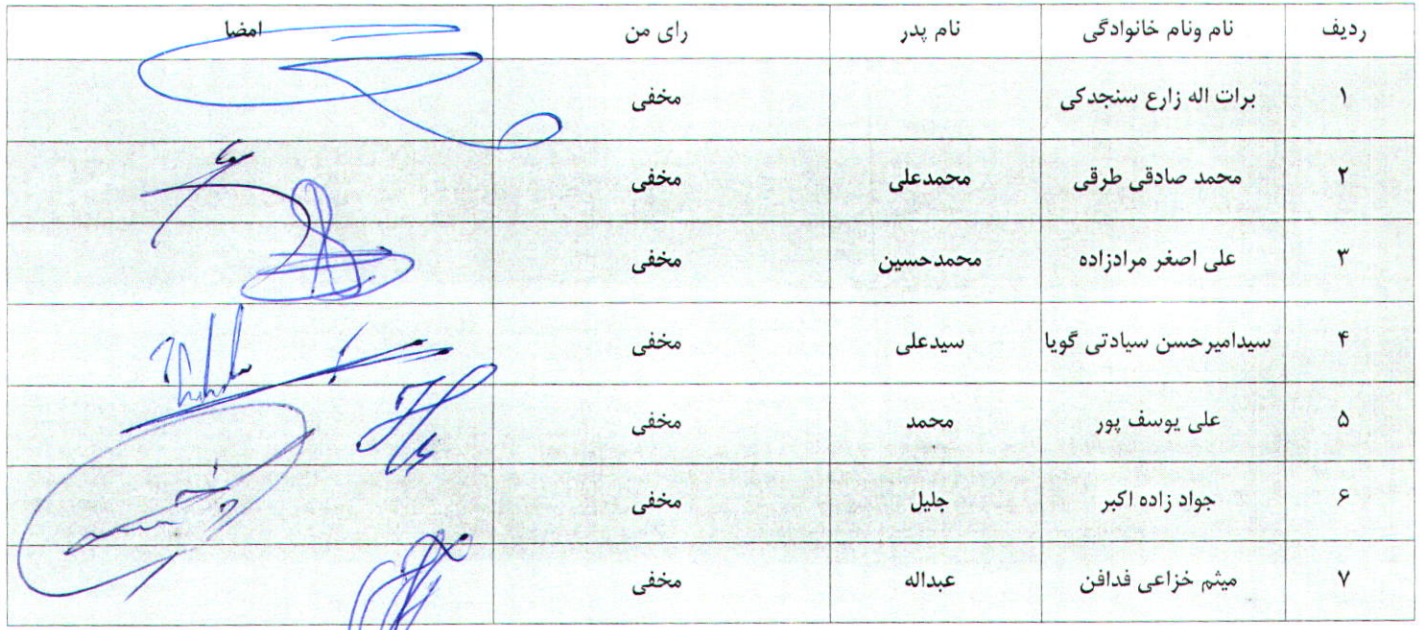 ردیف نام ونام خانوادگی نام پدر رای من امضا
۱ برات اله زارع سنجدکی مخفی
۲ محمد صادقی طرقی محمدعلی مخفی
۳ علی اصغر مرادزاده محمدحسین مخفی
۴ سیدامیرحسن سیادتی گویا سیدعلی مخفی
۵ علی یوسف پور محمد مخفی
۶ جواد زاده اکبر جلیل مخفی
۷ میثم خزاعی فدافن عبداله مخفی